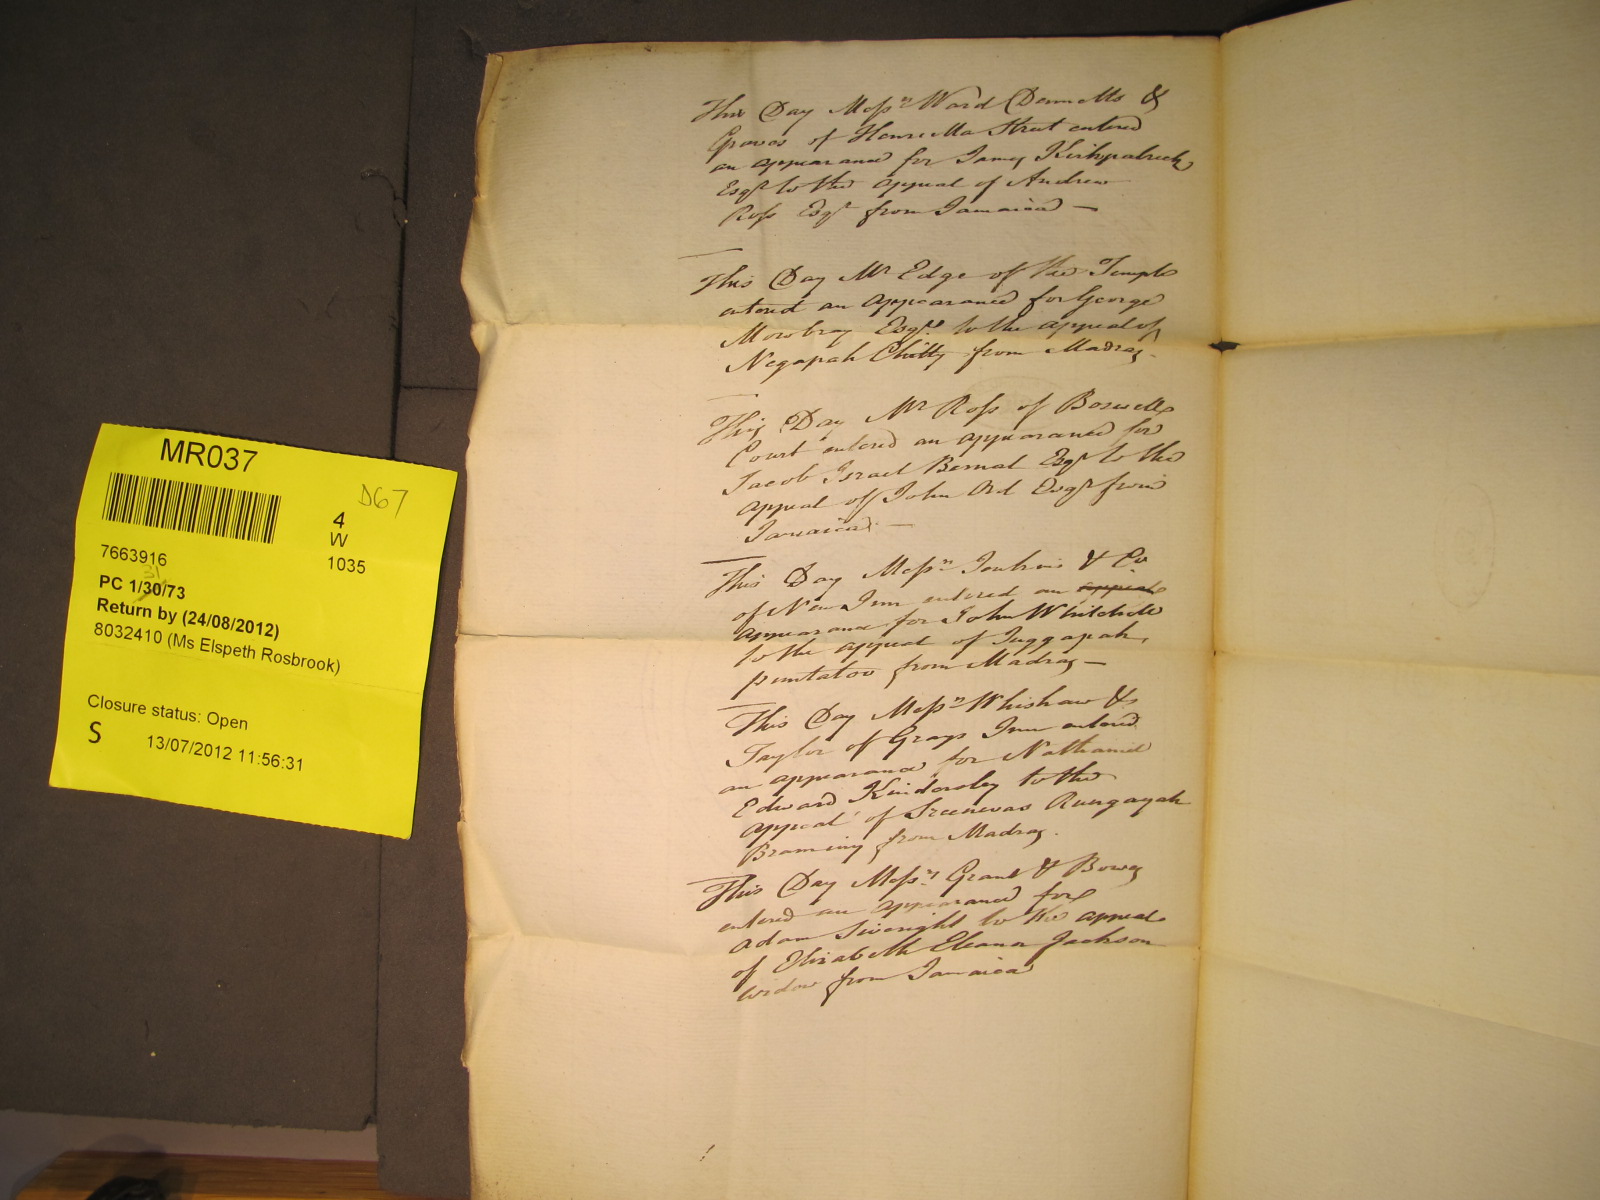 MR037
D67
4
W
7663916
1035
31
PC 1/30/73
Return by (24/08/2012)
8032410 (Ms Elspeth Rosbrook)
Closure status: Open
S 13/07/2012 11:56:31
This Day Messrs Ward Dennetts &
Groves of Henrietta Street entered
an appearance for James Kirkpatrick
Esqr to the appeal of Andrew
Ross Esqr from Jamaica —
This Day Mr Edge of the Temple
entered an appearance for George
Mowbray Esqr to the appeal of
Negapah Chitty from Madras.
This Day Mr Ross of Boswells
Court entered an appearance for
Jacob Israel Bernal Esqr to the
appeal of John Ord Esqr from
Jamaica. —
This Day Messrs Jenkins & Co
of New Inn entered an appeal
appearance for John Whitehill
to the appeal of Juggapah,
puntaloo from Madras —
This Day Messrs Whishaw &
Taylor of Grays Inn entered
an appearance for Nathaniel
Edward Kindersley to the
appeal of Sreenevas Rungayah
Braminy from Madras.
This Day Messrs Grant & Bowes
entered an appearance for
Adam Siveright to the appeal
of Elizabeth Eleanor Jackson
widow from Jamaica